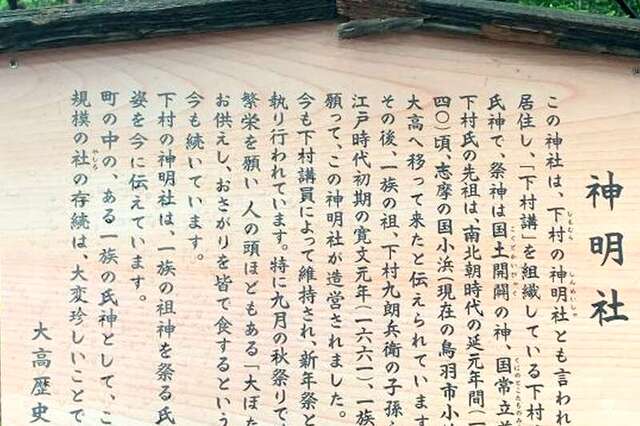 神明社
この神社は、下村の神明社とも言われ
居住し、「下村講」を組織している下村
氏神で、祭神は国土開闢の神、国常立
下村氏の先祖は、南北朝時代の延元年間（一
四〇）頃、志摩の国小浜（現在の鳥羽市小
大高へ移って来たと伝えられています
その後、一族の祖、下村九朗兵衛の子孫
江戸時代初期の寛文元年（一六六一）、一族
願って、この神明社が造営されました。
今も下村講員によって維持され、新年祭と
執り行われています。特に九月の秋祭りで
繁栄を願い 人の頭ほどもある「大ぼた
お供えし、おさがりを皆で食するという
今も続いています。
下村の神明社は、一族の祖神を祭る氏
姿を今に伝えています。
町の中の、ある一族の氏神として、こ
規模の社の存続は、大変珍しいことで
大高歴史